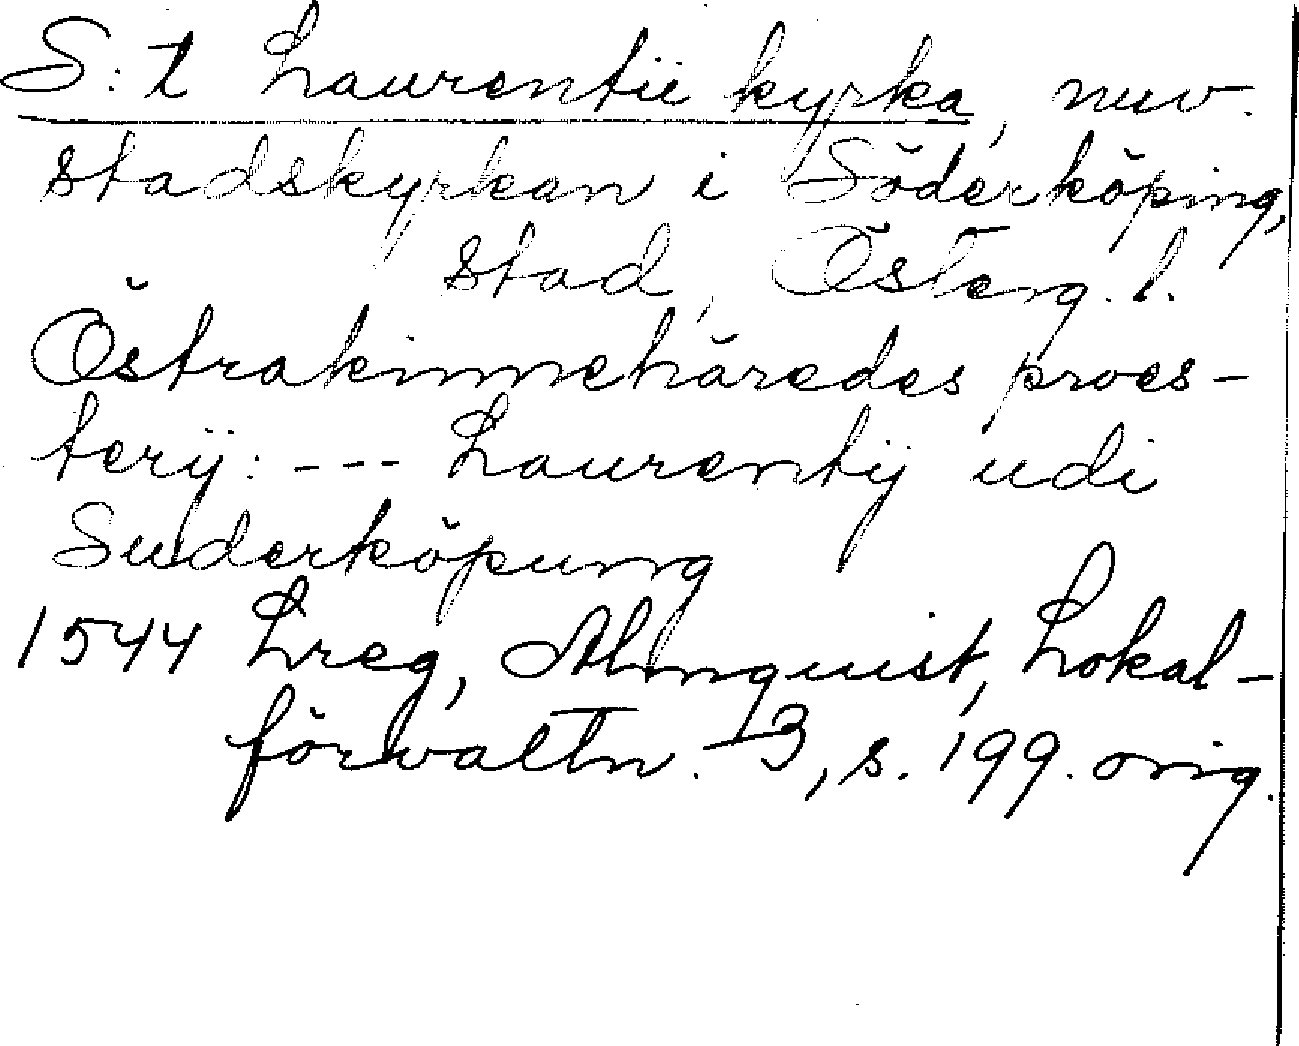 S:t Laurentii kyrka, nuv.
stadskyrkan i Söderköping,
stad, Österg. l.
Östrakinnehäredes proes-
terÿ: --- Laurentÿ udi
Suderköpung
1544 Lreg, Almquist, Lokal-
förvaltn. 3, s. 199. orig.